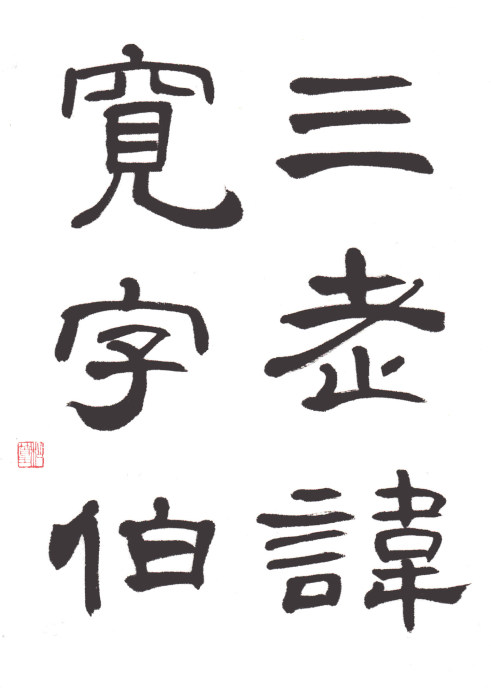 三老諱
寬字伯